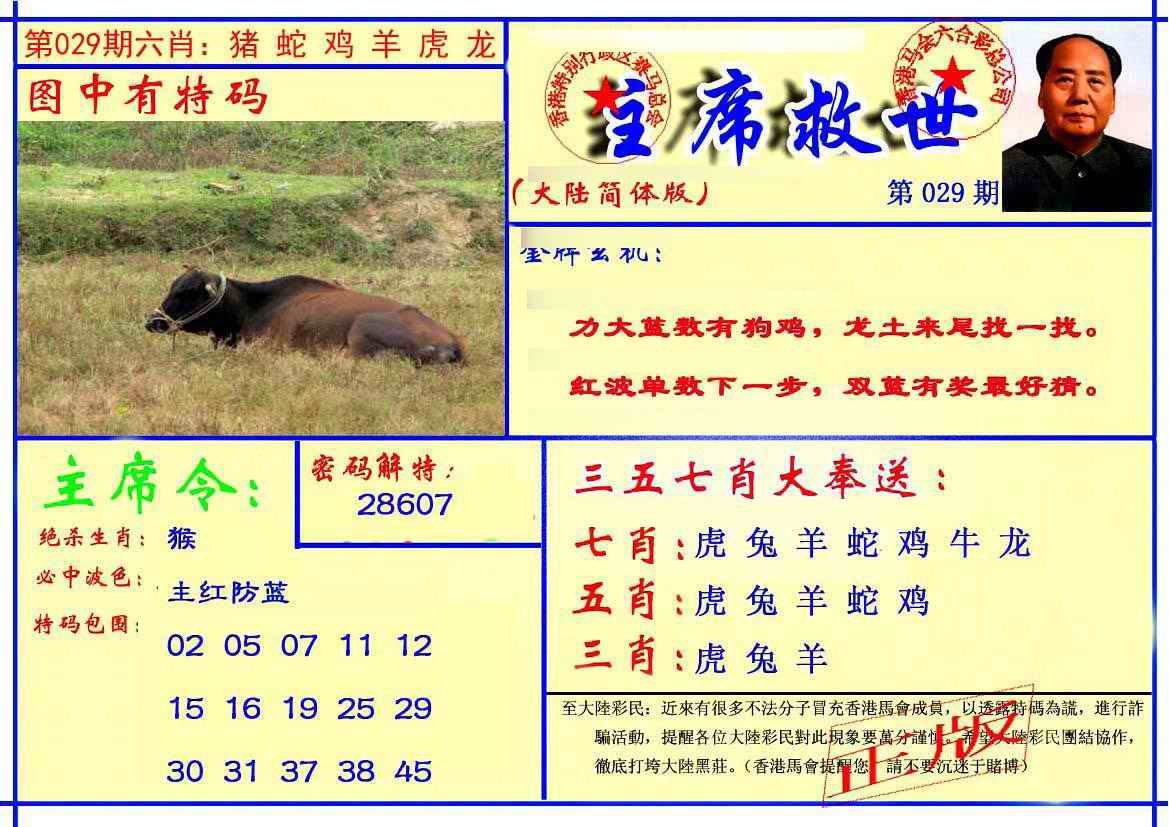 第029期六肖：猪 蛇 鸡 羊 虎 龙
图中有特码
香港特别行政区赛马总会
香港马会六合彩总公司
主席救世
（大陆简体版）
第 029 期
金牌玄机：
力大蓝数有狗鸡，龙土来尾找一找。
红波单数下一步，双蓝有奖最好猜。
主席令：
绝杀生肖：猴
必中波色：主红防蓝
特码包围：
02 05 07 11 12
15 16 19 25 29
30 31 37 38 45
密码解特：
28607
三五七肖大奉送：
七肖：虎 兔 羊 蛇 鸡 牛 龙
五肖：虎 兔 羊 蛇 鸡
三肖：虎 兔 羊
至大陸彩民：近來有很多不法分子冒充香港馬會成員，以透露特碼為謊，進行詐
騙活動，提醒各位大陸彩民對此現象要萬分謹慎。希望大陸彩民團結協作，
徹底打垮大陸黑莊。（香港馬會提醒您，請不要沉迷于賭博）
正版